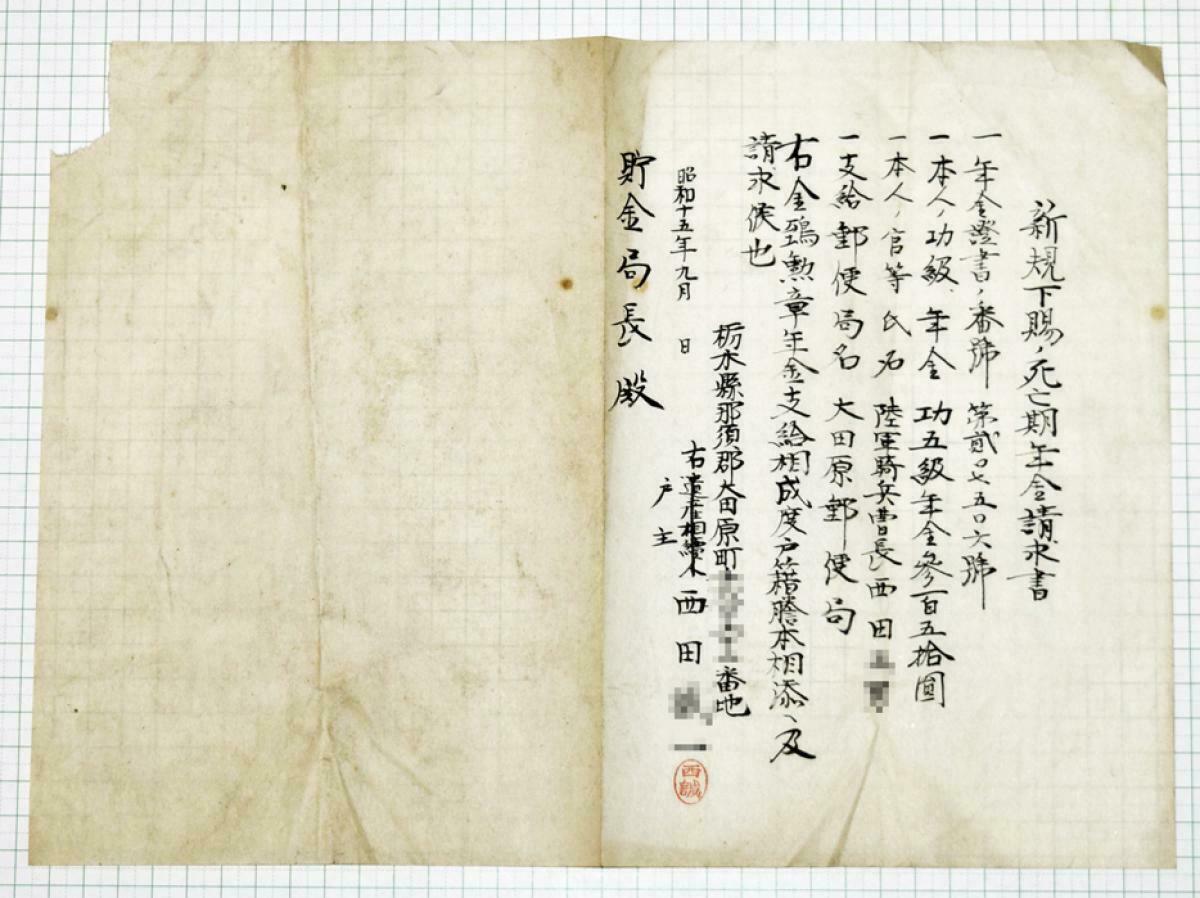 新規下賜ノ死亡期年金請求書
一年金證書ノ番號 第貳〇七五〇六號
一本人ノ功級、年金 功五級年金參百五拾圓
一本人ノ官等氏名 陸軍騎兵曹長西田
一支給郵便局名 大田原郵便局
右金鵄勲章年金支給相成度戸籍謄本相添ヘ及
請求候也
昭和十五年九月 日
栃木縣那須郡大田原町 番地
右遺産相續人
戸主
西田 一
西誠
貯金局長殿